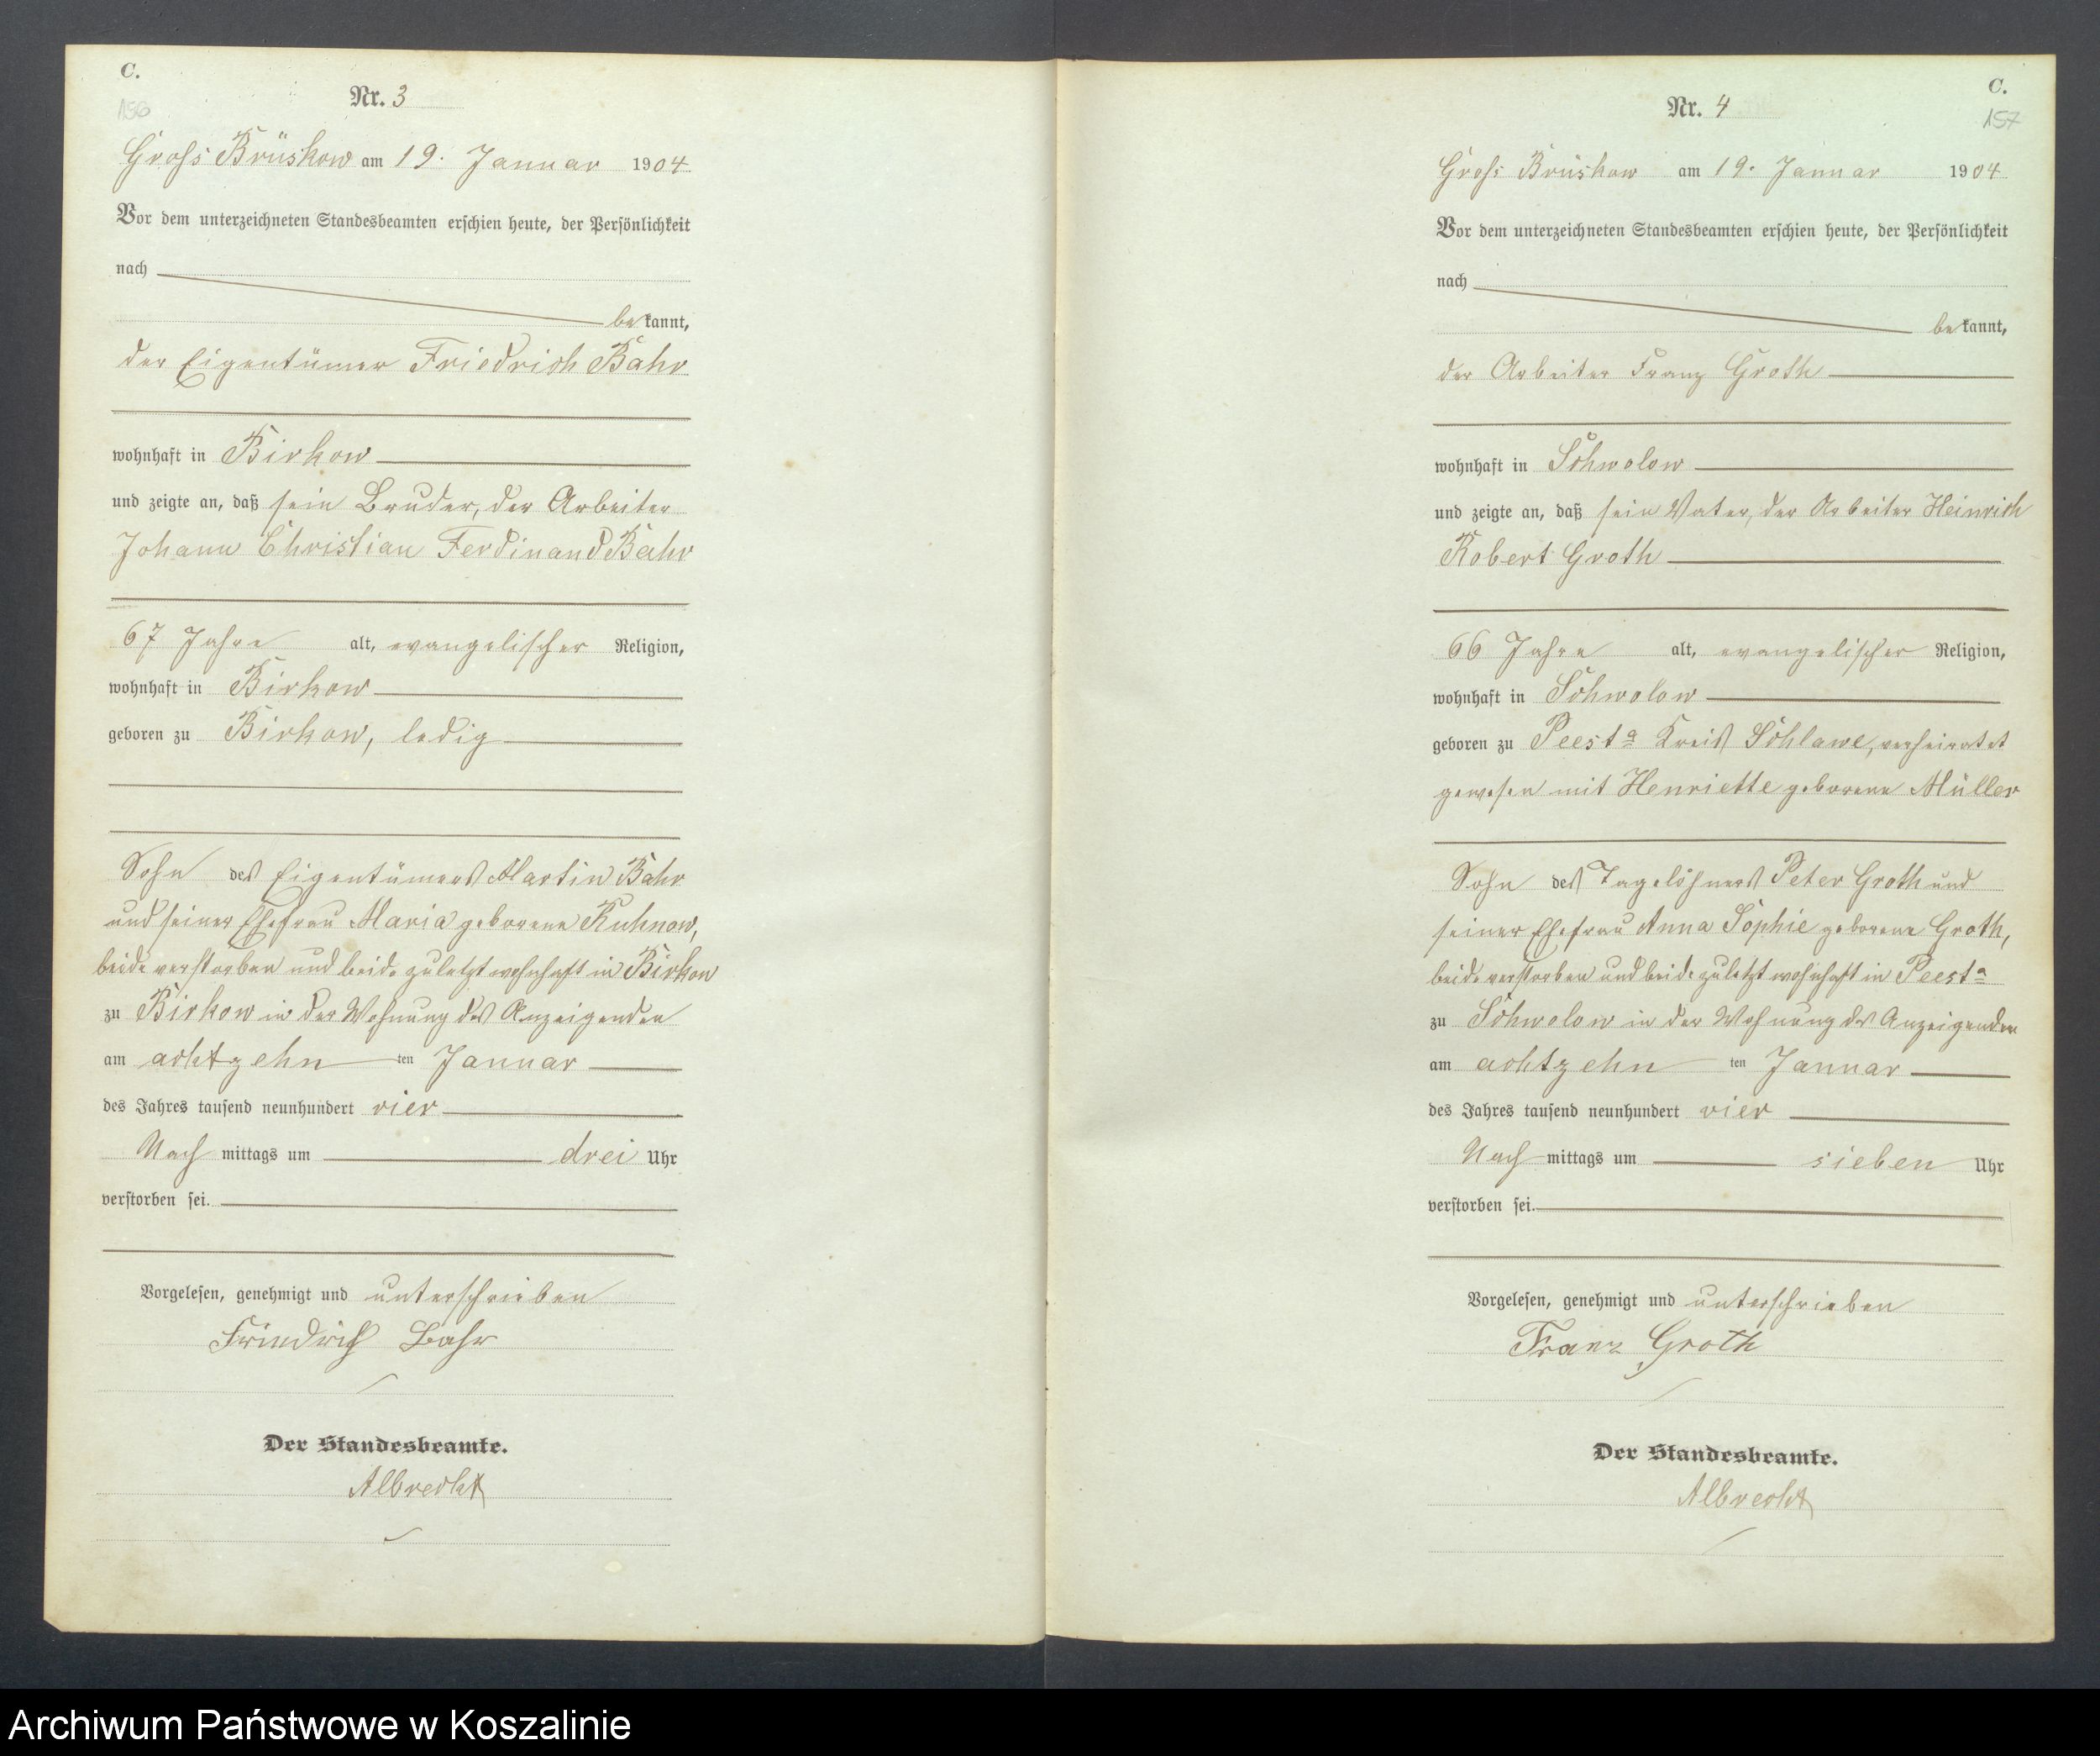 C.
156
Nr. 3
Gross Brüskow am 19. Januar 1904
Vor dem unterzeichneten Standesbeamten erschien heute, der Persönlichkeit
nach
bekannt,
der Eigentümer Friedrich Bahr
wohnhaft in Birkow
und zeigte an, daß sein Bruder, der Arbeiter
Johann Christian Ferdinand Bahr
67 Jahre alt, evangelischer Religion,
wohnhaft in Birkow
geboren zu Birkow, ledig
Sohn des Eigentümers Martin Bahr
und seiner Ehefrau Maria geborene Kuhnow,
beide verstorben und beide zuletzt wohnhaft in Birkow
zu Birkow in der Wohnung des Anzeigenden
am achtzehn ten Januar
des Jahres tausend neunhundert vier
Nachmittags um drei Uhr
verstorben sei.
Vorgelesen, genehmigt und unterschrieben
Friedrich Bahr
Der Standesbeamte.
Albrecht
C.
157
Nr. 4
Gross Brüskow am 19. Januar 1904
Vor dem unterzeichneten Standesbeamten erschien heute, der Persönlichkeit
nach
bekannt,
der Arbeiter Franz Groth
wohnhaft in Schwolow
und zeigte an, daß sein Vater, der Arbeiter Heinrich
Robert Groth
66 Jahre alt, evangelischer Religion,
wohnhaft in Schwolow
geboren zu Peest a Kreis Schlawe, verheiratet
gewesen mit Henriette geborene Müller
Sohn des Tagelöhners Peter Groth und
seiner Ehefrau Anna Sophie geborene Groth,
beide verstorben und beide zuletzt wohnhaft in Peest a
zu Schwolow in der Wohnung des Anzeigenden
am achtzehn ten Januar
des Jahres tausend neunhundert vier
Nachmittags um sieben Uhr
verstorben sei.
Vorgelesen, genehmigt und unterschrieben
Franz Groth
Der Standesbeamte.
Albrecht
Archiwum Państwowe w Koszalinie